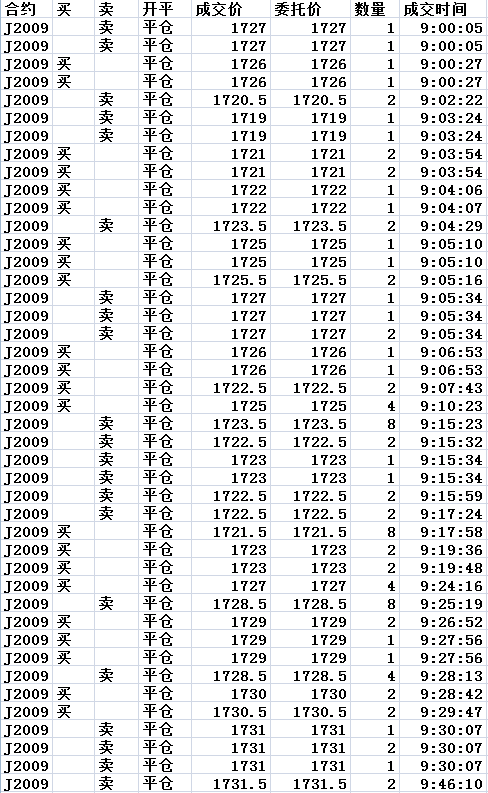 合约 买 卖 开平 成交价 委托价 数量 成交时间
J2009 卖 平仓 1727 1727 1 9:00:05
J2009 卖 平仓 1727 1727 1 9:00:05
J2009 买 平仓 1726 1726 1 9:00:27
J2009 买 平仓 1726 1726 1 9:00:27
J2009 卖 平仓 1720.5 1720.5 2 9:02:22
J2009 卖 平仓 1719 1719 1 9:03:24
J2009 卖 平仓 1719 1719 1 9:03:24
J2009 买 平仓 1721 1721 2 9:03:54
J2009 买 平仓 1721 1721 2 9:03:54
J2009 买 平仓 1722 1722 1 9:04:06
J2009 买 平仓 1722 1722 1 9:04:07
J2009 卖 平仓 1723.5 1723.5 2 9:04:29
J2009 买 平仓 1725 1725 1 9:05:10
J2009 买 平仓 1725 1725 1 9:05:10
J2009 买 平仓 1725.5 1725.5 2 9:05:16
J2009 卖 平仓 1727 1727 1 9:05:34
J2009 卖 平仓 1727 1727 1 9:05:34
J2009 卖 平仓 1727 1727 2 9:05:34
J2009 买 平仓 1726 1726 1 9:06:53
J2009 买 平仓 1726 1726 1 9:06:53
J2009 买 平仓 1722.5 1722.5 2 9:07:43
J2009 买 平仓 1725 1725 4 9:10:23
J2009 卖 平仓 1723.5 1723.5 8 9:15:23
J2009 卖 平仓 1722.5 1722.5 2 9:15:32
J2009 卖 平仓 1723 1723 1 9:15:34
J2009 卖 平仓 1723 1723 1 9:15:34
J2009 卖 平仓 1722.5 1722.5 2 9:15:59
J2009 卖 平仓 1722.5 1722.5 2 9:17:24
J2009 买 平仓 1721.5 1721.5 8 9:17:58
J2009 买 平仓 1723 1723 2 9:19:36
J2009 买 平仓 1723 1723 2 9:19:48
J2009 买 平仓 1727 1727 4 9:24:16
J2009 卖 平仓 1728.5 1728.5 8 9:25:19
J2009 买 平仓 1729 1729 2 9:26:52
J2009 买 平仓 1729 1729 1 9:27:56
J2009 买 平仓 1729 1729 1 9:27:56
J2009 卖 平仓 1728.5 1728.5 4 9:28:13
J2009 买 平仓 1730 1730 2 9:28:42
J2009 买 平仓 1730.5 1730.5 2 9:29:47
J2009 卖 平仓 1731 1731 1 9:30:07
J2009 卖 平仓 1731 1731 2 9:30:07
J2009 卖 平仓 1731 1731 1 9:30:07
J2009 卖 平仓 1731.5 1731.5 2 9:46:10